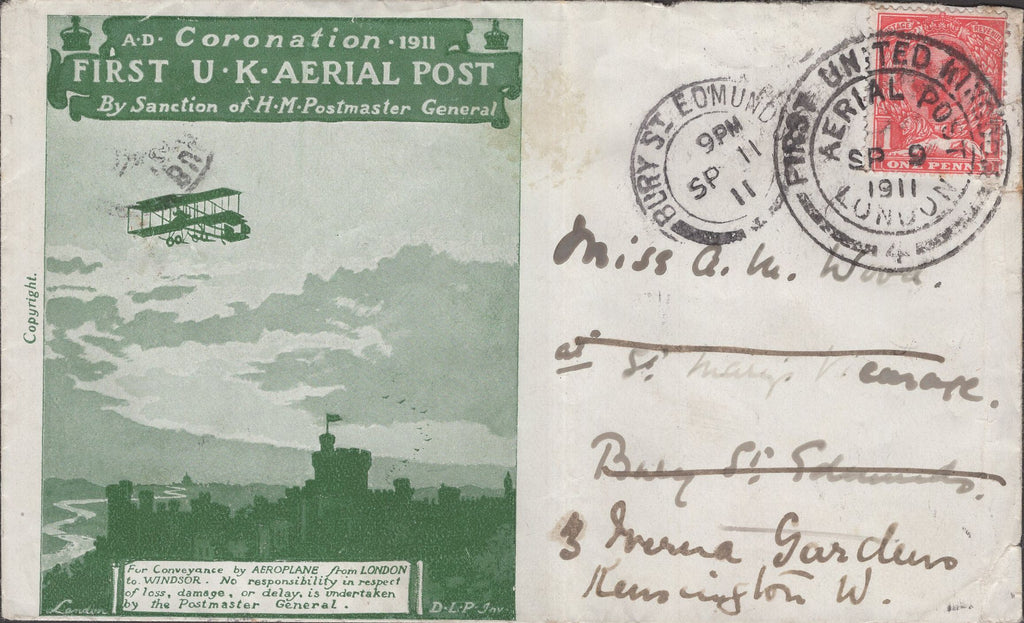 A·D· Coronation · 1911
FIRST U·K·AERIAL POST
By Sanction of H·M·Postmaster General
Copyright.
For Conveyance by AEROPLANE from LONDON
to WINDSOR. No responsibility in respect
of loss, damage, or delay, is undertaken
by the Postmaster General.
London
D·L·P·Inv.
BURY ST EDMUND
9PM
SP 11
11
FIRST UNITED KING
AERIAL POST
SP 9
1911
LONDON
4
POSTAGE REVENUE
1 1
ONE PENNY
Miss A. M. Wood.
at St Mary's Vicarage.
Bury St Edmunds.
3 Iverna Gardens
Kensington W.